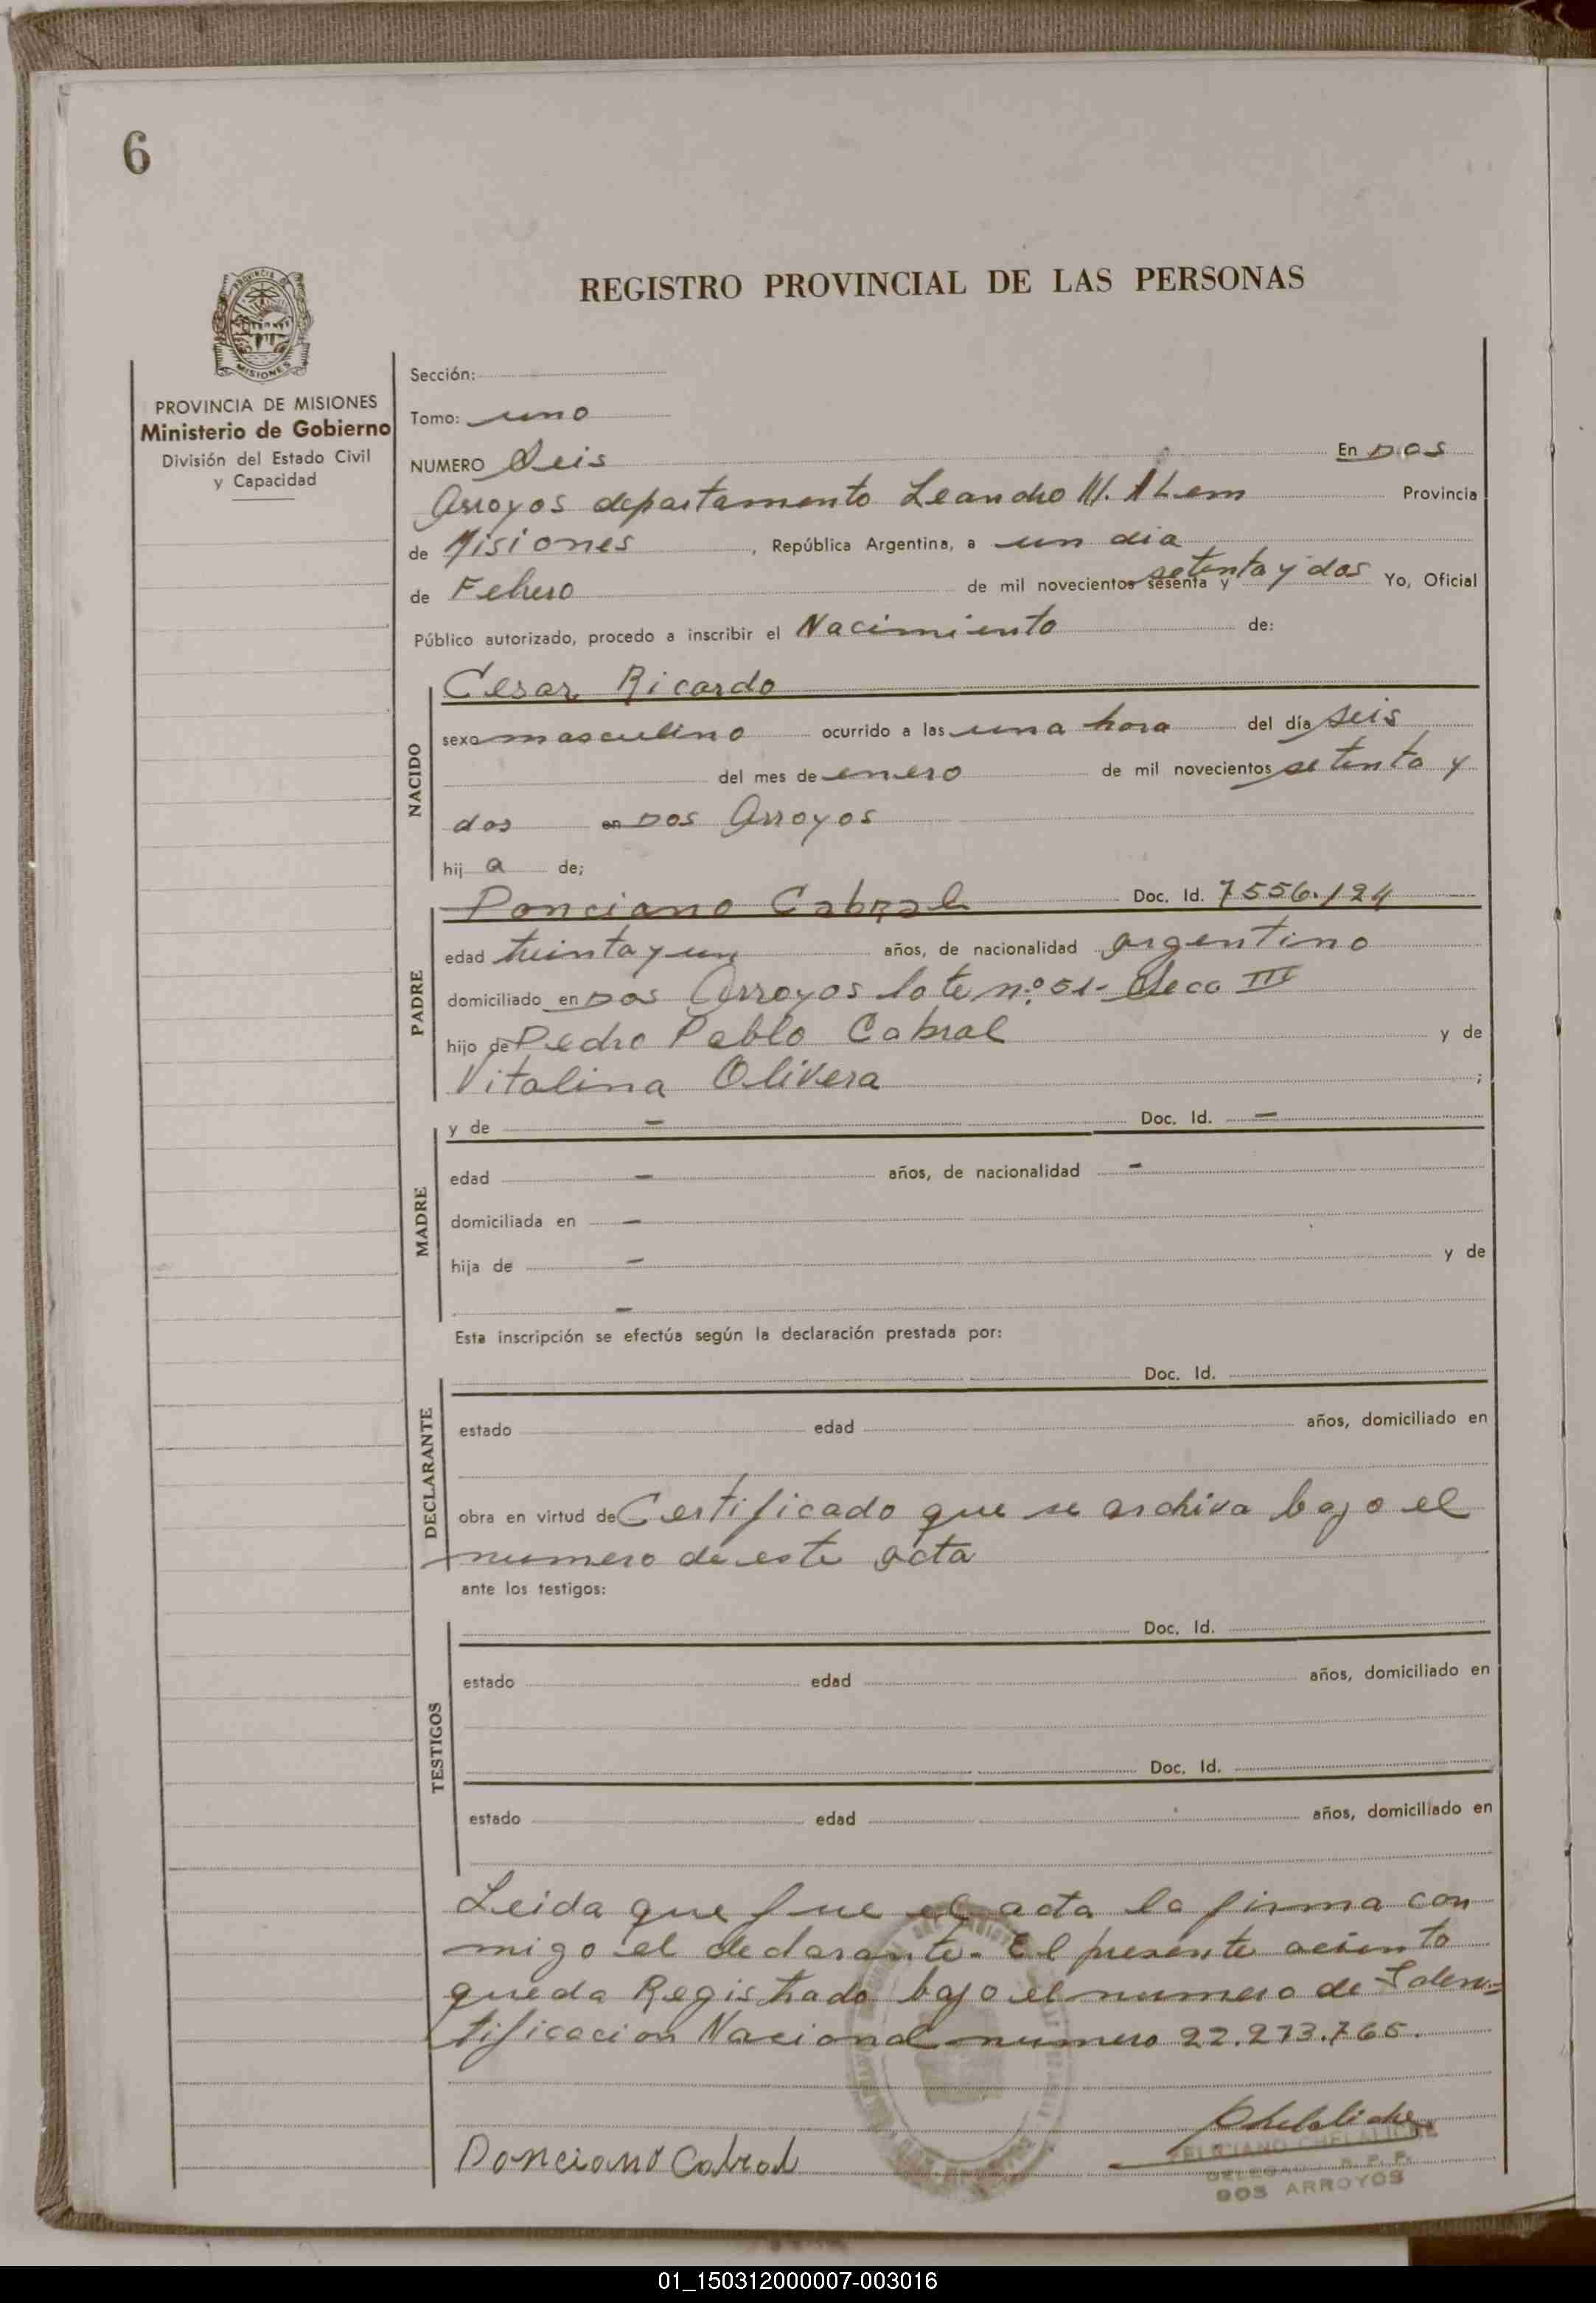 6
PROVINCIA DE
MISIONES
REGISTRO PROVINCIAL DE LAS PERSONAS
PROVINCIA DE MISIONES
Ministerio de Gobierno
División del Estado Civil
y Capacidad
Sección:
Tomo: uno
NUMERO Seis En Dos
Arroyos departamento Leandro N. Alem Provincia
de Misiones, República Argentina, a un dia
de Febrero de mil novecientos sesenta y setenta y dos Yo, Oficial
Público autorizado, procedo a inscribir el Nacimiento de:
NACIDO
Cesar Ricardo
sexo masculino ocurrido a las una hora del día seis
del mes de enero de mil novecientos setenta y
dos en Dos Arroyos
hij a de;
PADRE
Ponciano Cabral Doc. Id. 7556.124
edad treinta y un años, de nacionalidad argentino
domiciliado en Dos Arroyos lote n.º 51- Secc III
hijo de Pedro Pablo Cabral y de
Vitalina Olivera ;
MADRE
y de - Doc. Id. -
edad - años, de nacionalidad -
domiciliada en -
hija de - y de
-
Esta inscripción se efectúa según la declaración prestada por:
DECLARANTE
Doc. Id.
estado edad años, domiciliado en
obra en virtud de Certificado que se archiva bajo el
numero de este acta
ante los testigos:
TESTIGOS
Doc. Id.
estado edad años, domiciliado en
Doc. Id.
estado edad años, domiciliado en
Leida que fue el acta la firma con
migo el declarante. El presente aciento
queda Registrado bajo el numero de Iden-
tificacion Nacional numero 22.273.765.
Ponciano Cabral
FELICIANO CHELALICHE
DELEGADO R. P. P.
DOS ARROYOS
01_150312000007-003016